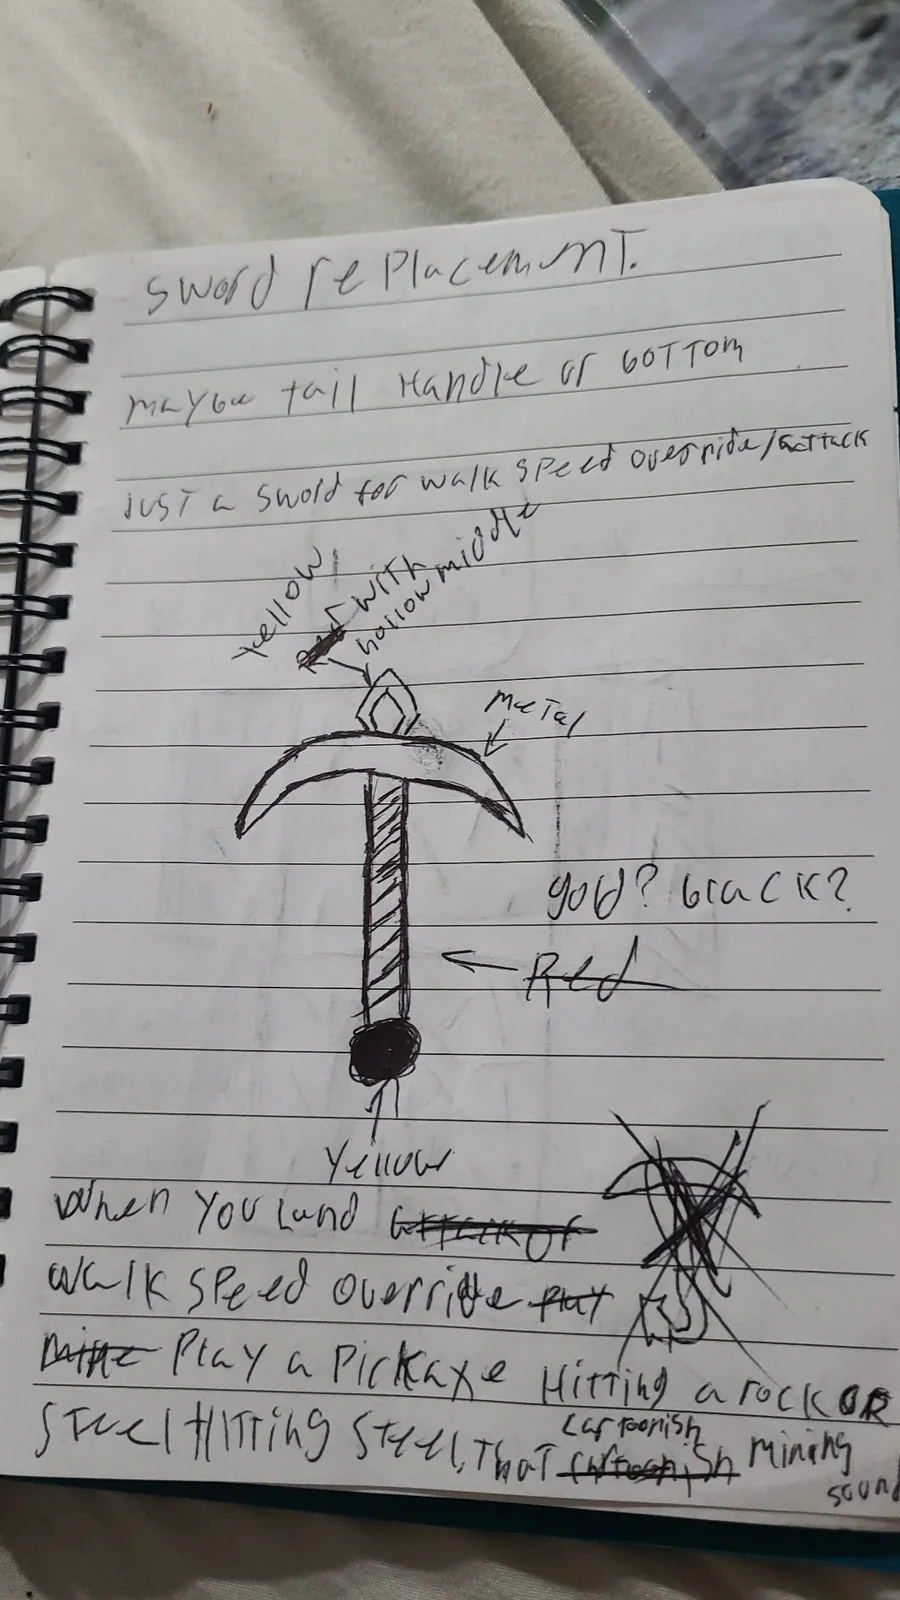 sword replacement.
maybe tall Handle or bottom
JUST a sword for walk speed override/attack
yellow
Red with
hollow middle
metal
gold? black?
Red
Yellow
When you Land attack of
walk speed override play
mine Play a Pickaxe Hitting a rock OR
Steel Hitting Steel, That cartoonish mining
cartoonish
sound